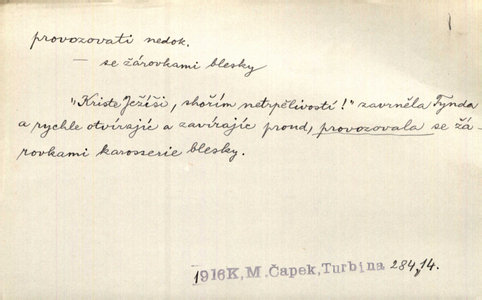 provozovati nedok.
— se žárovkami blesky
"Kriste Ježíši, shořím netrpělivostí!" zavrněla Tynda
a rychle otvírajíc a zavírajíc proud, provozovala se žá-
rovkami karosserie blesky.
1916K.M.Čapek,Turbina 284,14.